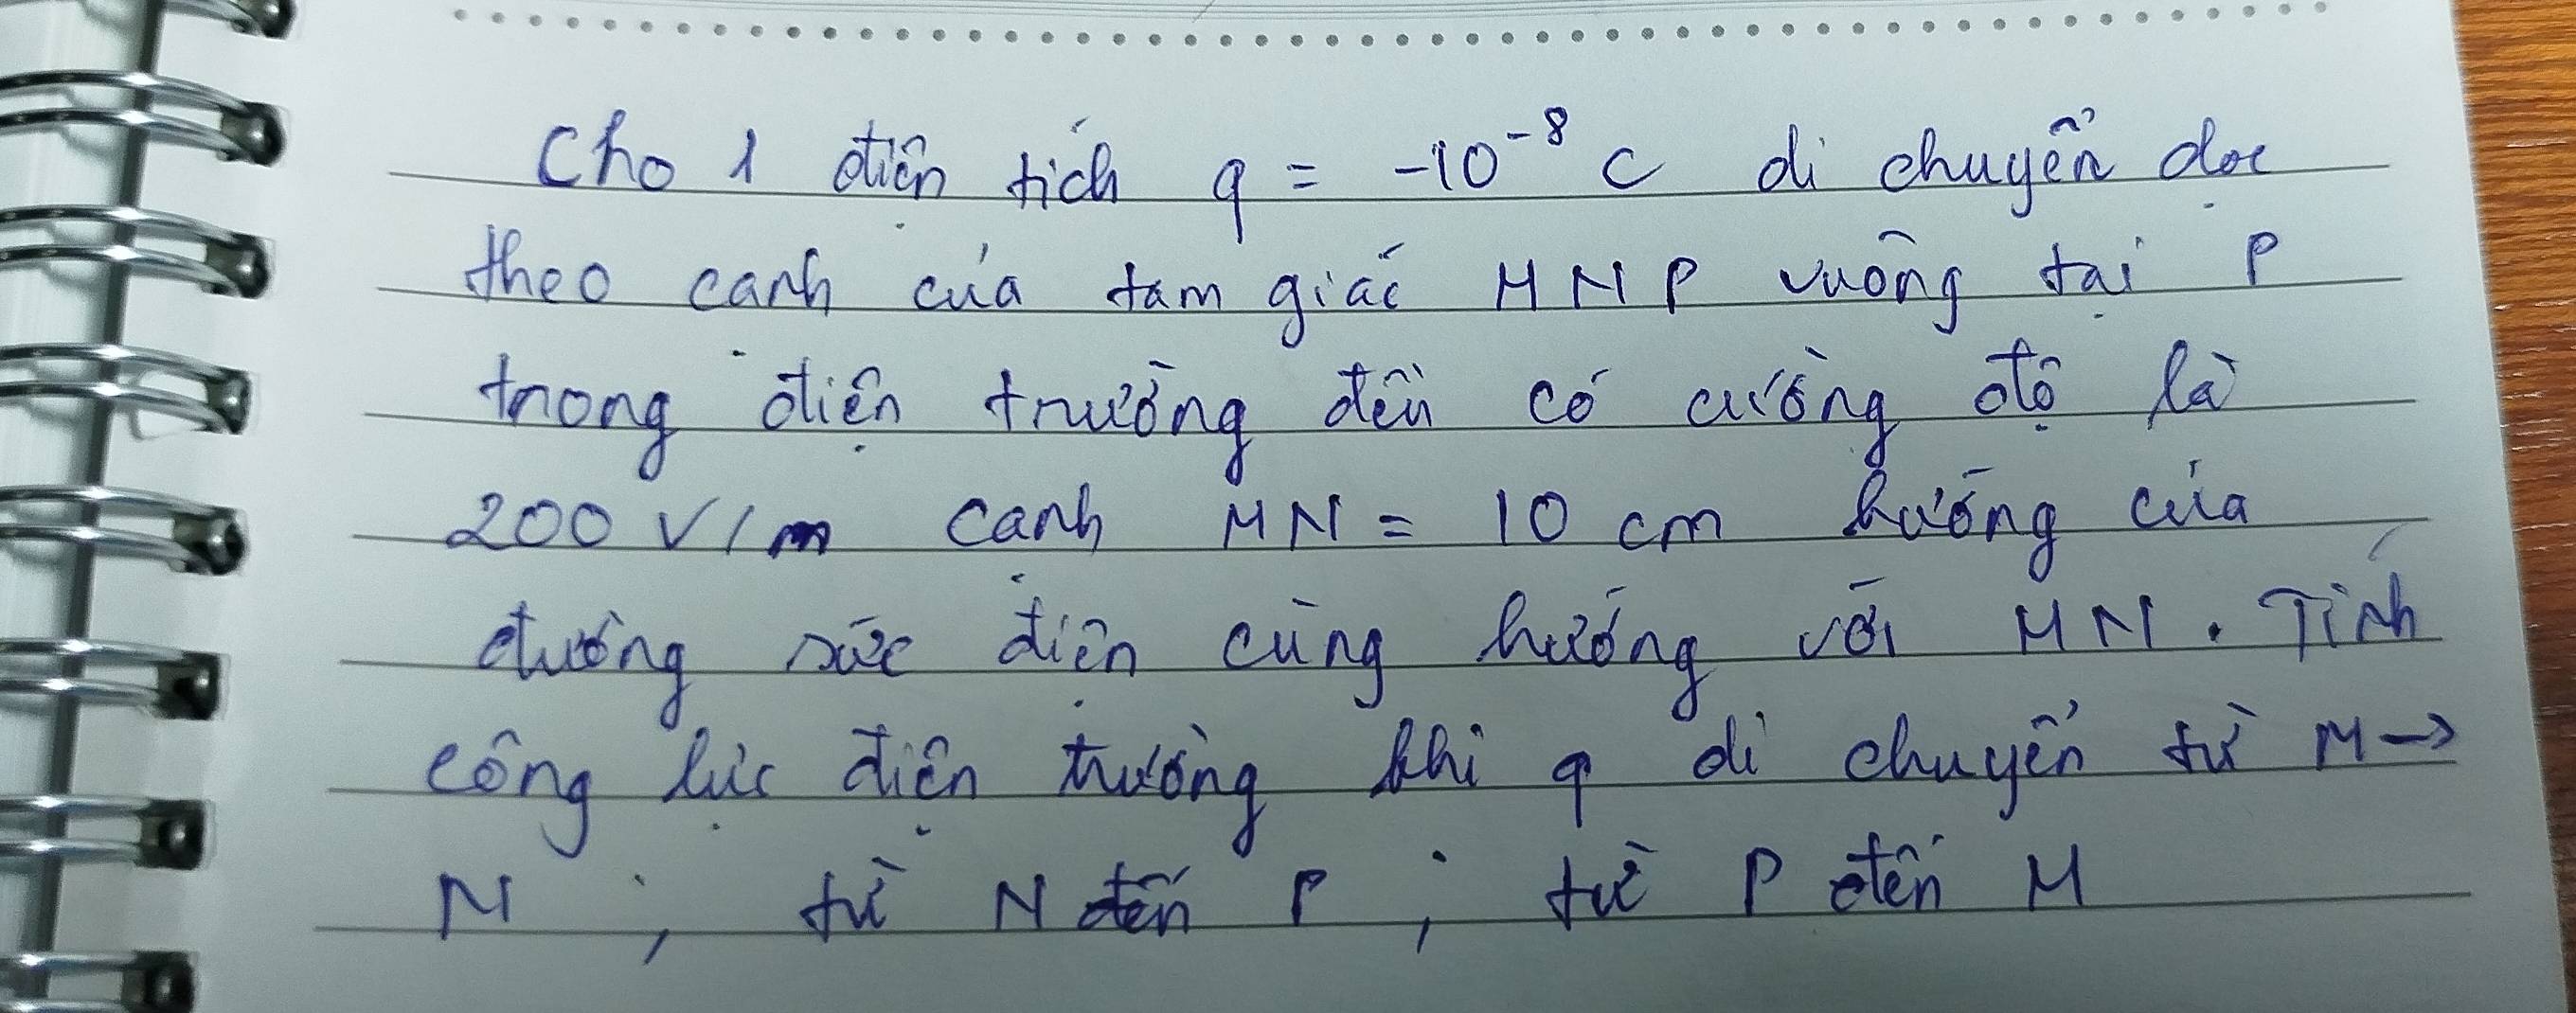 Cho 1 điện tích q = -10⁻⁸ C di chuyển dọc
theo canh của tam giác MNP vuông tại P
trong điện trường đều có cường độ là
200 V/m canh MN = 10 cm hướng của
đường sức điện cùng hướng với MN. Tính
công lực điện trường khi q di chuyển từ M →
N ; từ N đến P ; từ P đến M